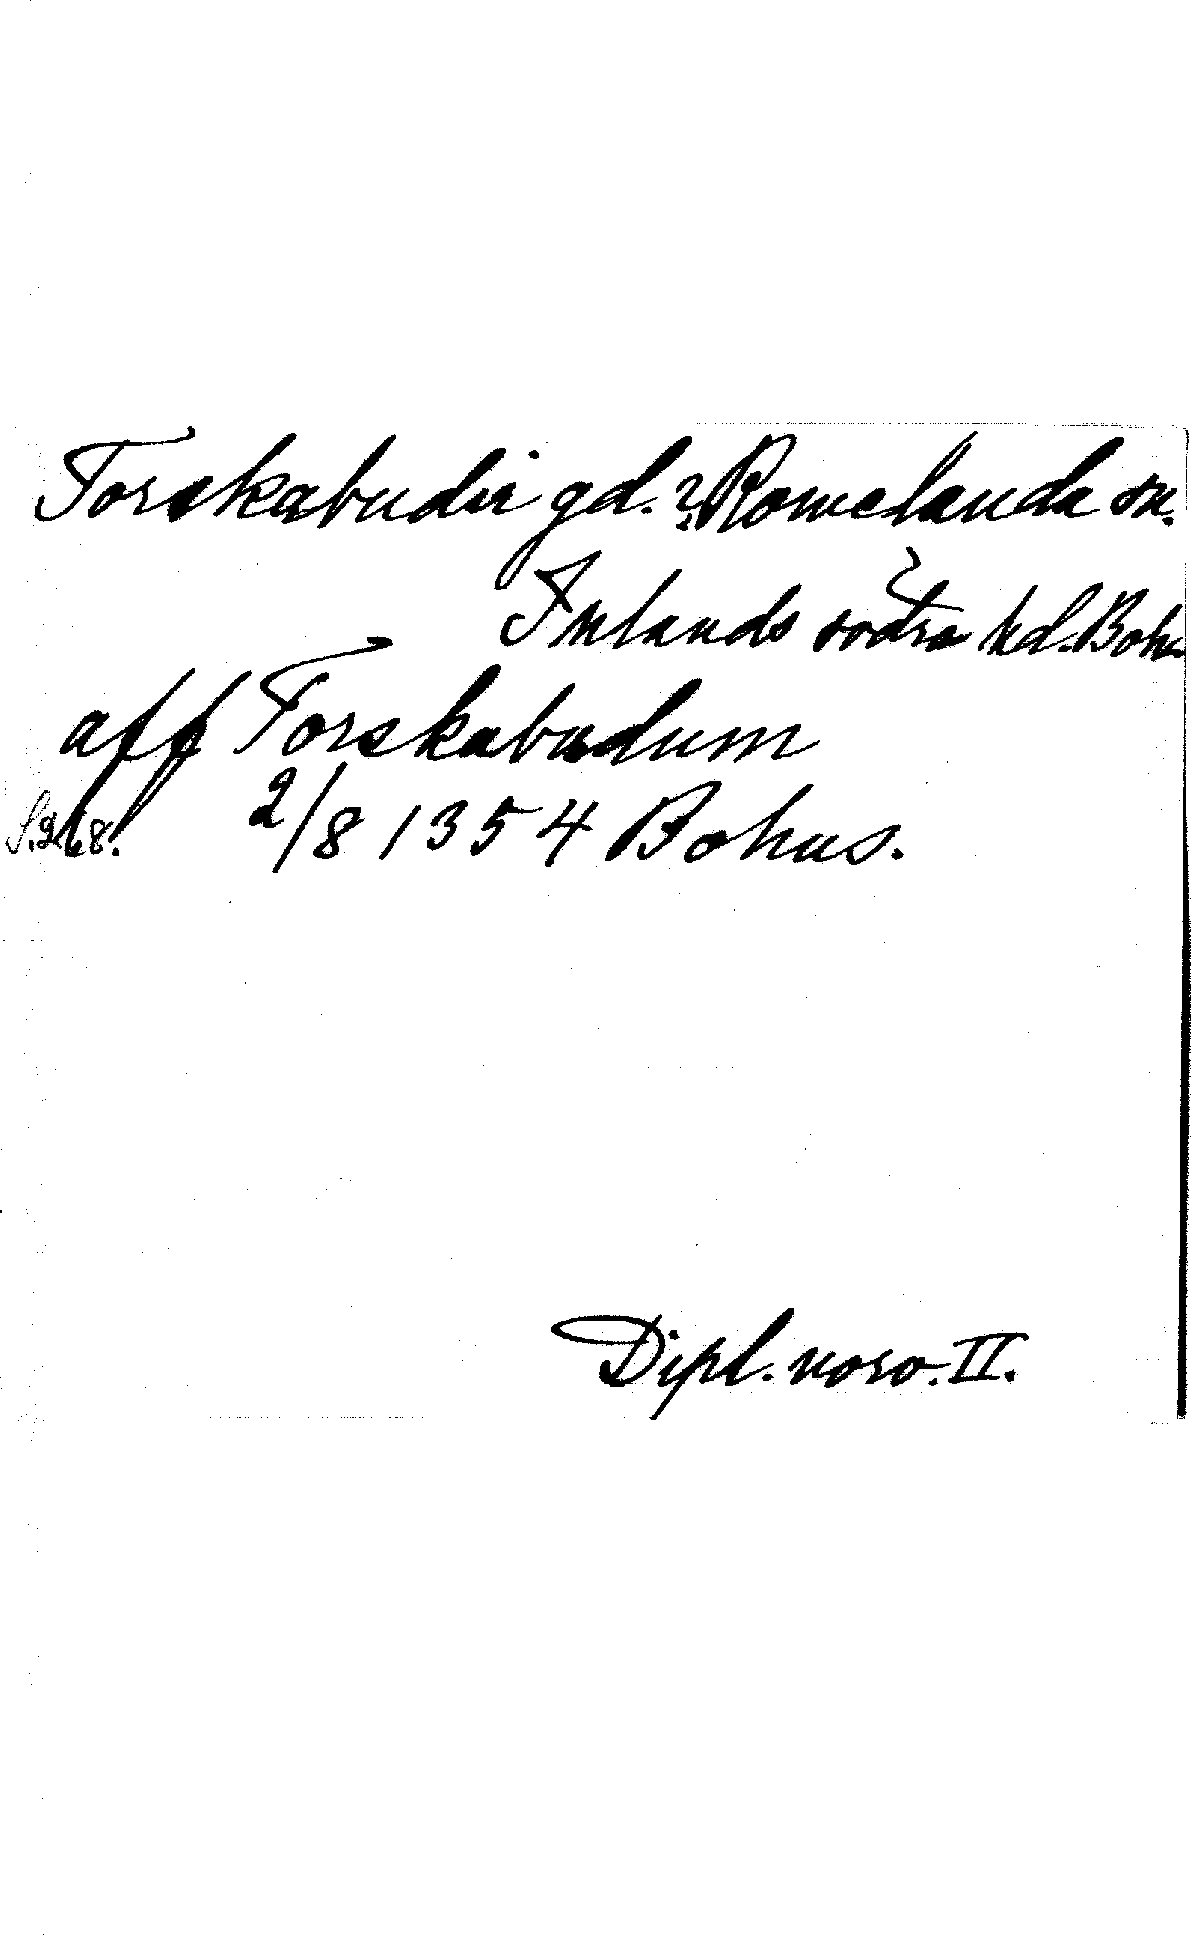 Torskabudir gd.? Romelanda sn.
Inlands södra hd. Boh.
aff Torskabudum
S. 268. 2/8 1354 Bohus.
Dipl. norv. II.